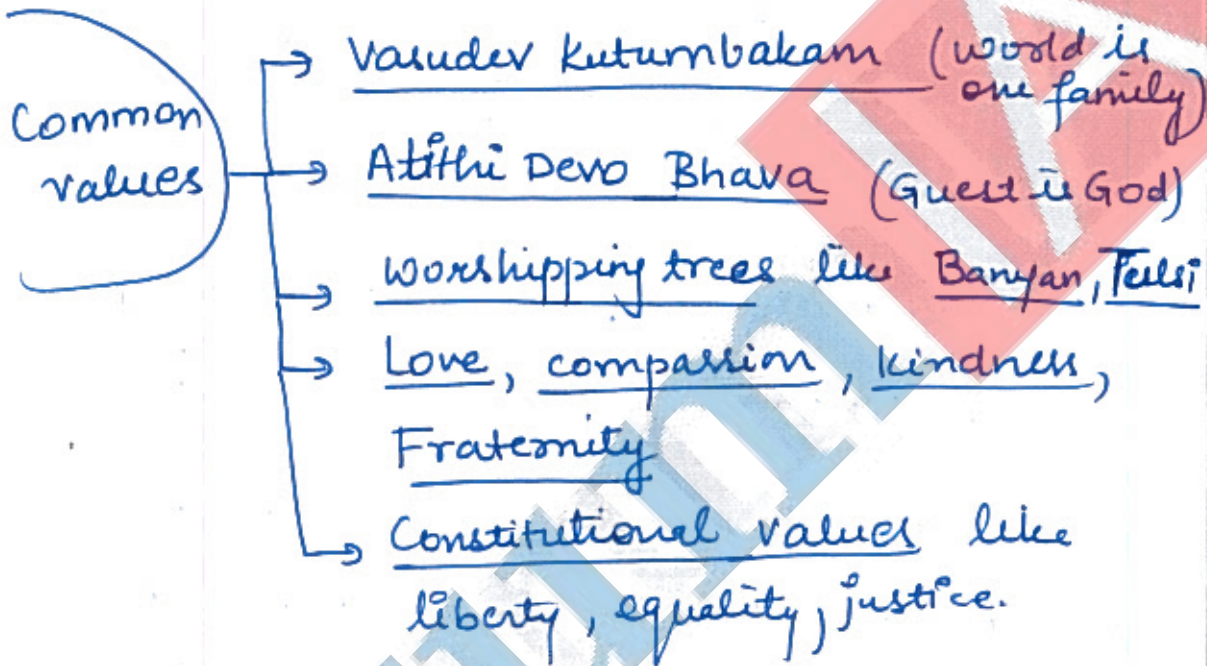 Common
values
Vasudev Kutumbakam (world is
one family)
Atithi Devo Bhava (Guest is God)
worshipping trees like Banyan, Tulsi
Love, compassion, kindness,
Fraternity
Constitutional values like
liberty, equality, justice.